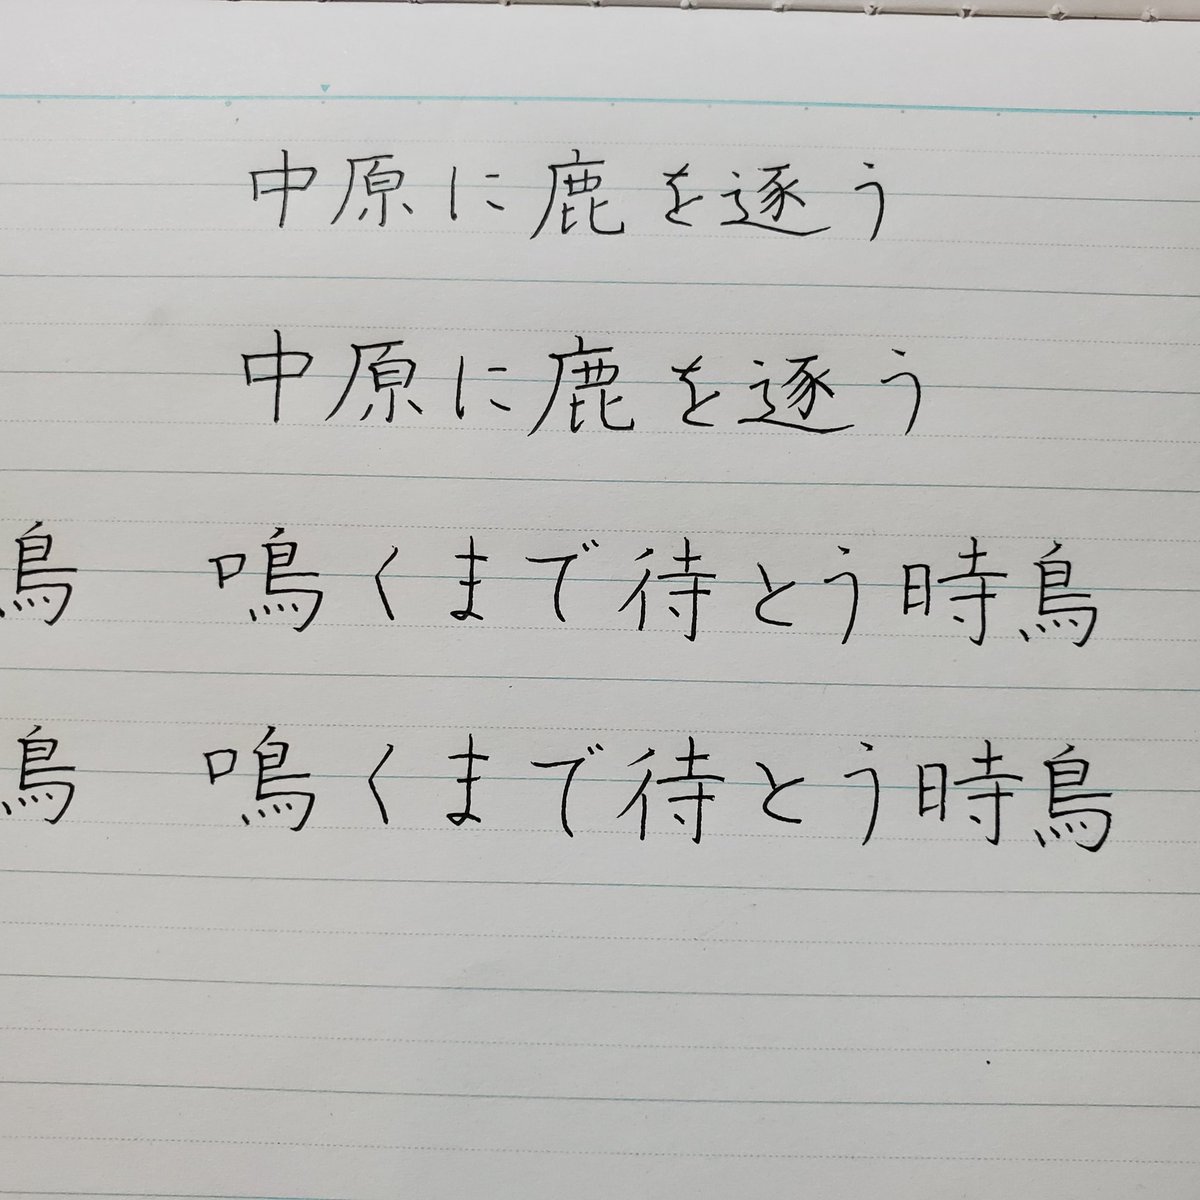 中原に鹿を逐う
中原に鹿を逐う
鳥 鳴くまで待とう時鳥
鳥 鳴くまで待とう時鳥